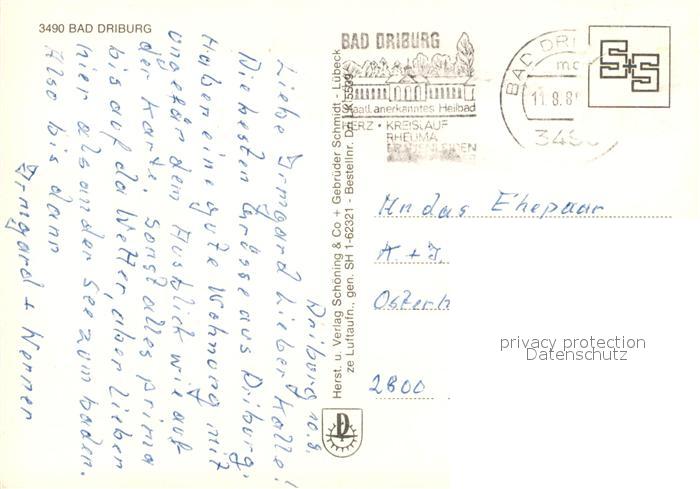 3490 BAD DRIBURG
Driburg 10.8.
Liebe Irmgard lieber Kalle!
Die besten Grüsse aus Driburg,
Haben eine gute Wohnung mit
ungefär dem Ausblick wie auf
der Karte. Sonst alles prima
bis auf da Wetter, aber lieber
hier als an der See zum baden.
Also bis dann
Irmgard + Werner
Herst. u. Verlag Schöning & Co + Gebrüder Schmidt - Lübeck
ze Luftaufn., gen. SH 1-62321 - Bestellnr.
BAD DRIBURG
Staatl. anerkanntes Heilbad
HERZ • KREISLAUF
RHEUMA
FRAUENLEIDEN
BAD DRI
11.8.8
349
S+S
An das Ehepaar
A. + I.
Osterh
2800
privacy protection
Datenschutz